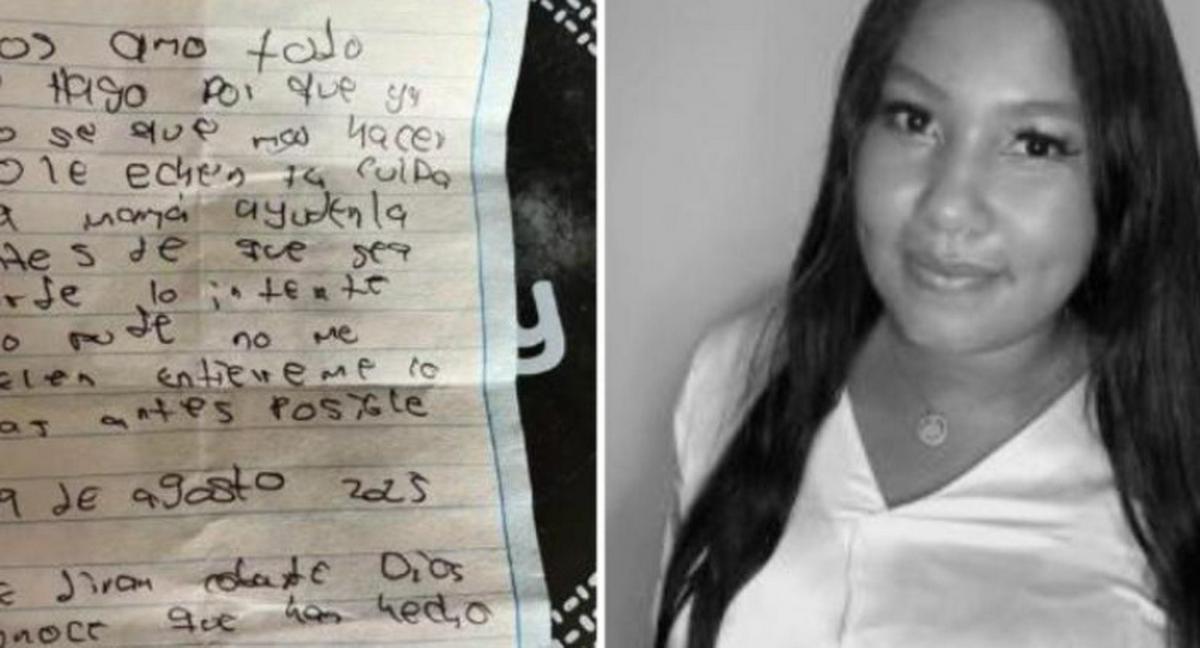 os amo todo
Hago por que ya
o se que mas hacer
o le echen la culpa
a mamá ayudenla
tes de que sea
rde lo intente
o pude no me
elen entierreme lo
as antes posible
9 de agosto 2025
e diran cobarde Dios
onoce que has hecho
y